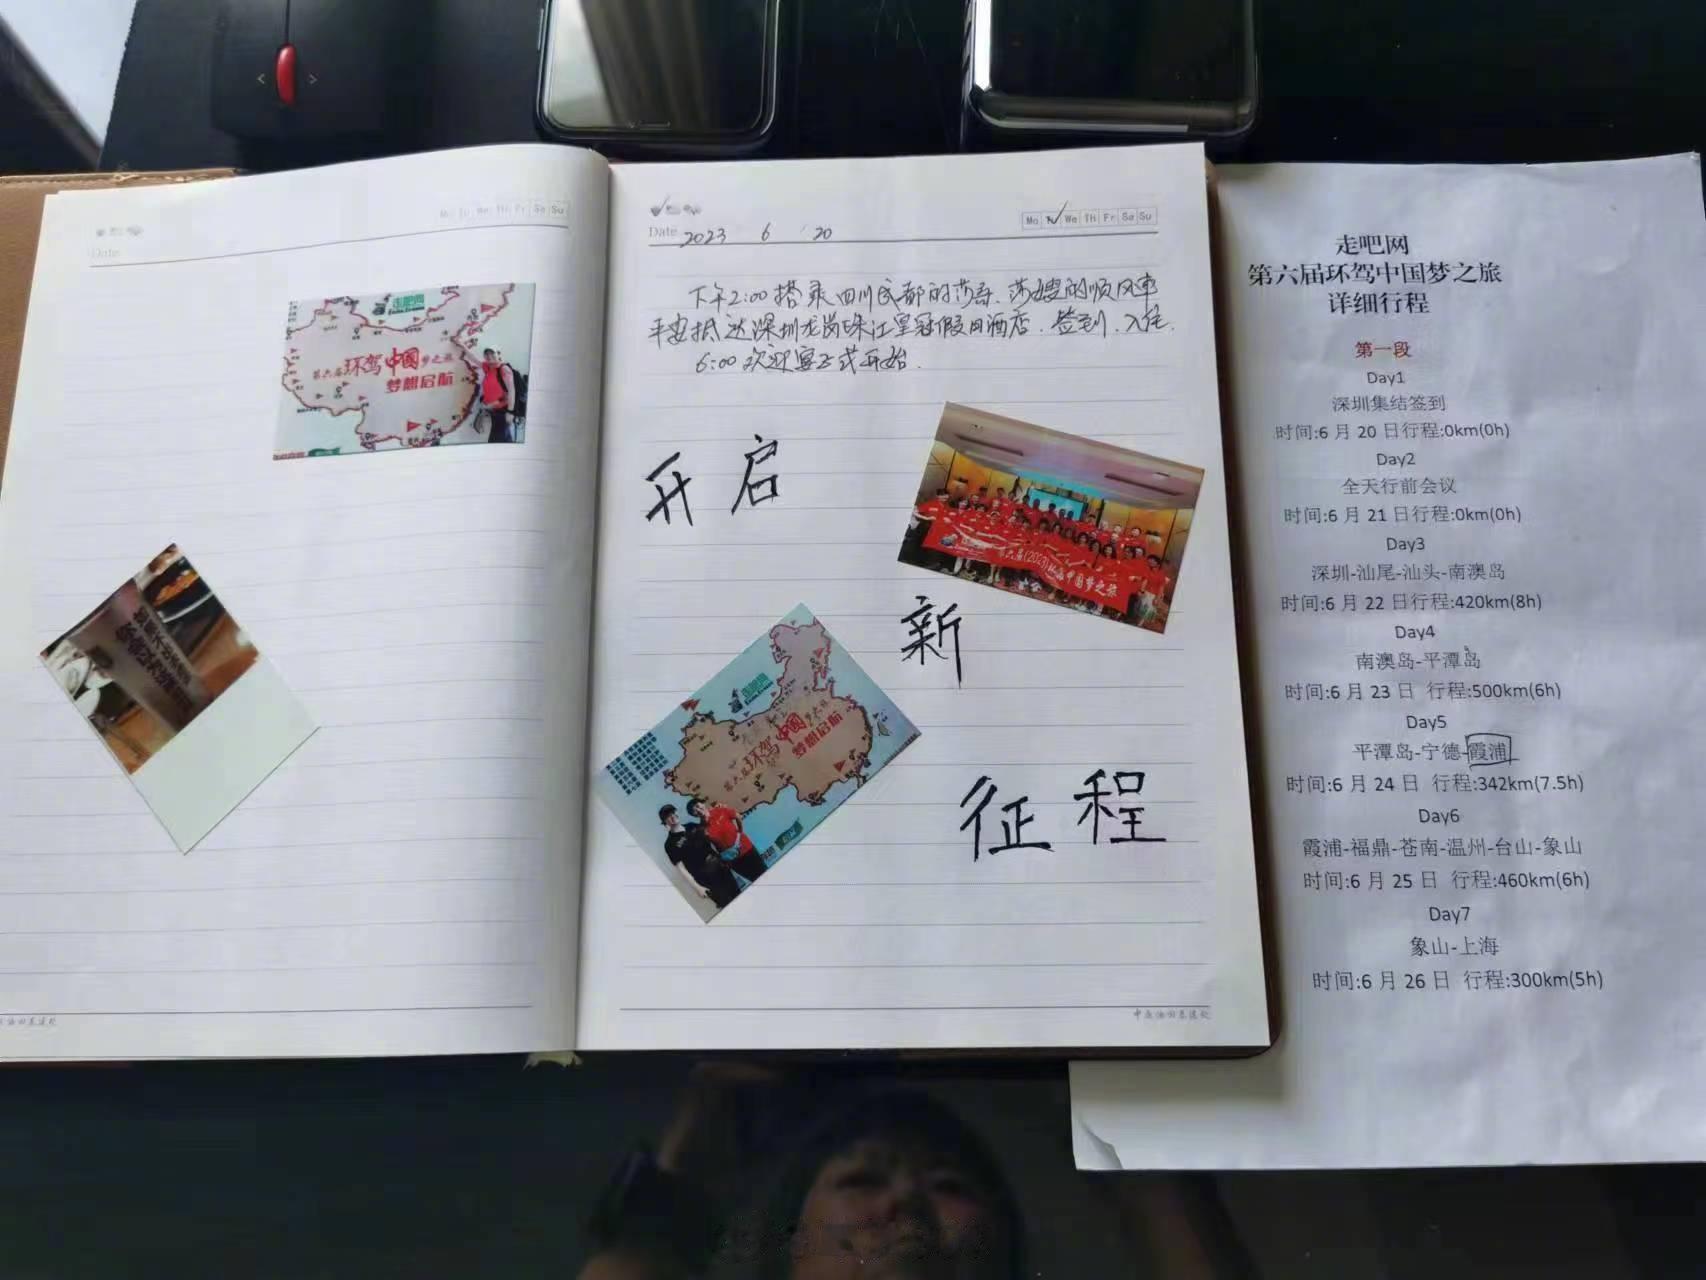 Mo Tu We Th Fr Sa Su
Date
走吧网
第六届环驾中国梦之旅
梦想启航
Mo Tu We Th Fr Sa Su
Date 2023 6 20
下午2:00搭乘四川成都的莎哥、莎嫂的顺风车
平安抵达深圳龙岗珠江皇冠假日酒店.签到.入住.
6:00欢迎宴正式开始.
开启
新
征程
第六届(2023)环驾中国梦之旅
走吧网
第六届环驾中国梦之旅
梦想启航
走吧网
第六届环驾中国梦之旅
详细行程
第一段
Day1
深圳集结签到
时间:6月20日行程:0km(0h)
Day2
全天行前会议
时间:6月21日行程:0km(0h)
Day3
深圳-汕尾-汕头-南澳岛
时间:6月22日行程:420km(8h)
Day4
南澳岛-平潭岛
时间:6月23日 行程:500km(6h)
Day5
平潭岛-宁德-霞浦
时间:6月24日 行程:342km(7.5h)
Day6
霞浦-福鼎-苍南-温州-台山-象山
时间:6月25日 行程:460km(6h)
Day7
象山-上海
时间:6月26日 行程:300km(5h)